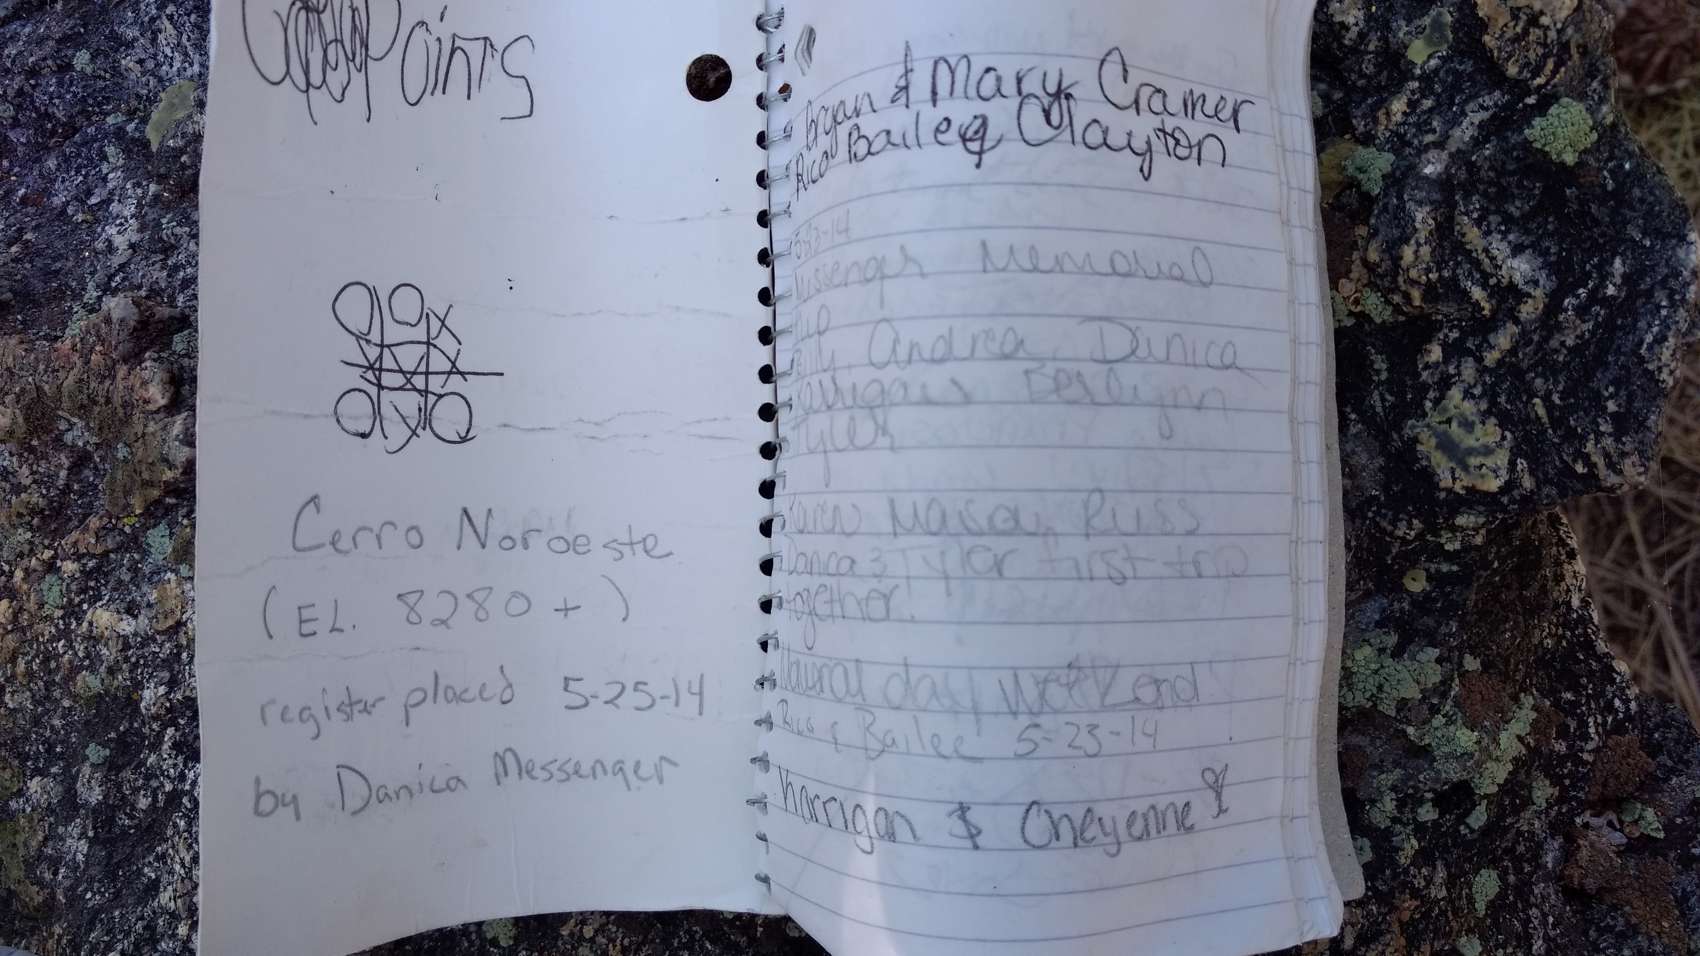 Points
Cerro Noroeste
(EL. 8280+)
register placed 5-25-14
by Danica Messenger
Bryan & Mary Cramer
Rico Bailee Clayton
5-23-14
Messenger Memorial
Andrea, Danica
Berlynn
Tyler
Karen Maisa, Russ
Danica & Tyler first trip
together!
day weekend
Rico & Bailee 5-23-14
Karrigan & Cheyenne